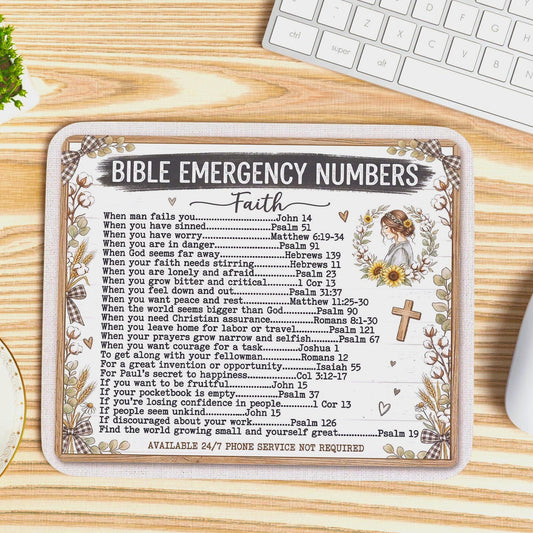 ctrl
super
alt
BIBLE EMERGENCY NUMBERS
Faith
When man fails you....................John 14
When you have sinned...............Psalm 51
When you have worry...............Matthew 6:19-34
When you are in danger...........Psalm 91
When God seems far away...........Hebrews 139
When your faith needs stirring...........Hebrews 11
When you are lonely and afraid........Psalm 23
When you grow bitter and critical........1 Cor 13
When you feel down and out........Psalm 31:37
When you want peace and rest........Matthew 11:25-30
When the world seems bigger than God........Psalm 90
When you need Christian assurance........Romans 8:1-30
When you leave home for labor or travel........Psalm 121
When your prayers grow narrow and selfish........Psalm 67
When you want courage for a task........Joshua 1
To get along with your fellowman........Romans 12
For a great invention or opportunity........Isaiah 55
For Paul's secret to happiness........Col 3:12-17
If you want to be fruitful........John 15
If your pocketbook is empty........Psalm 37
If you're losing confidence in people........1 Cor 13
If people seem unkind........John 15
If discouraged about your work........Psalm 126
Find the world growing small and yourself great........Psalm 19
AVAILABLE 24/7 PHONE SERVICE NOT REQUIRED